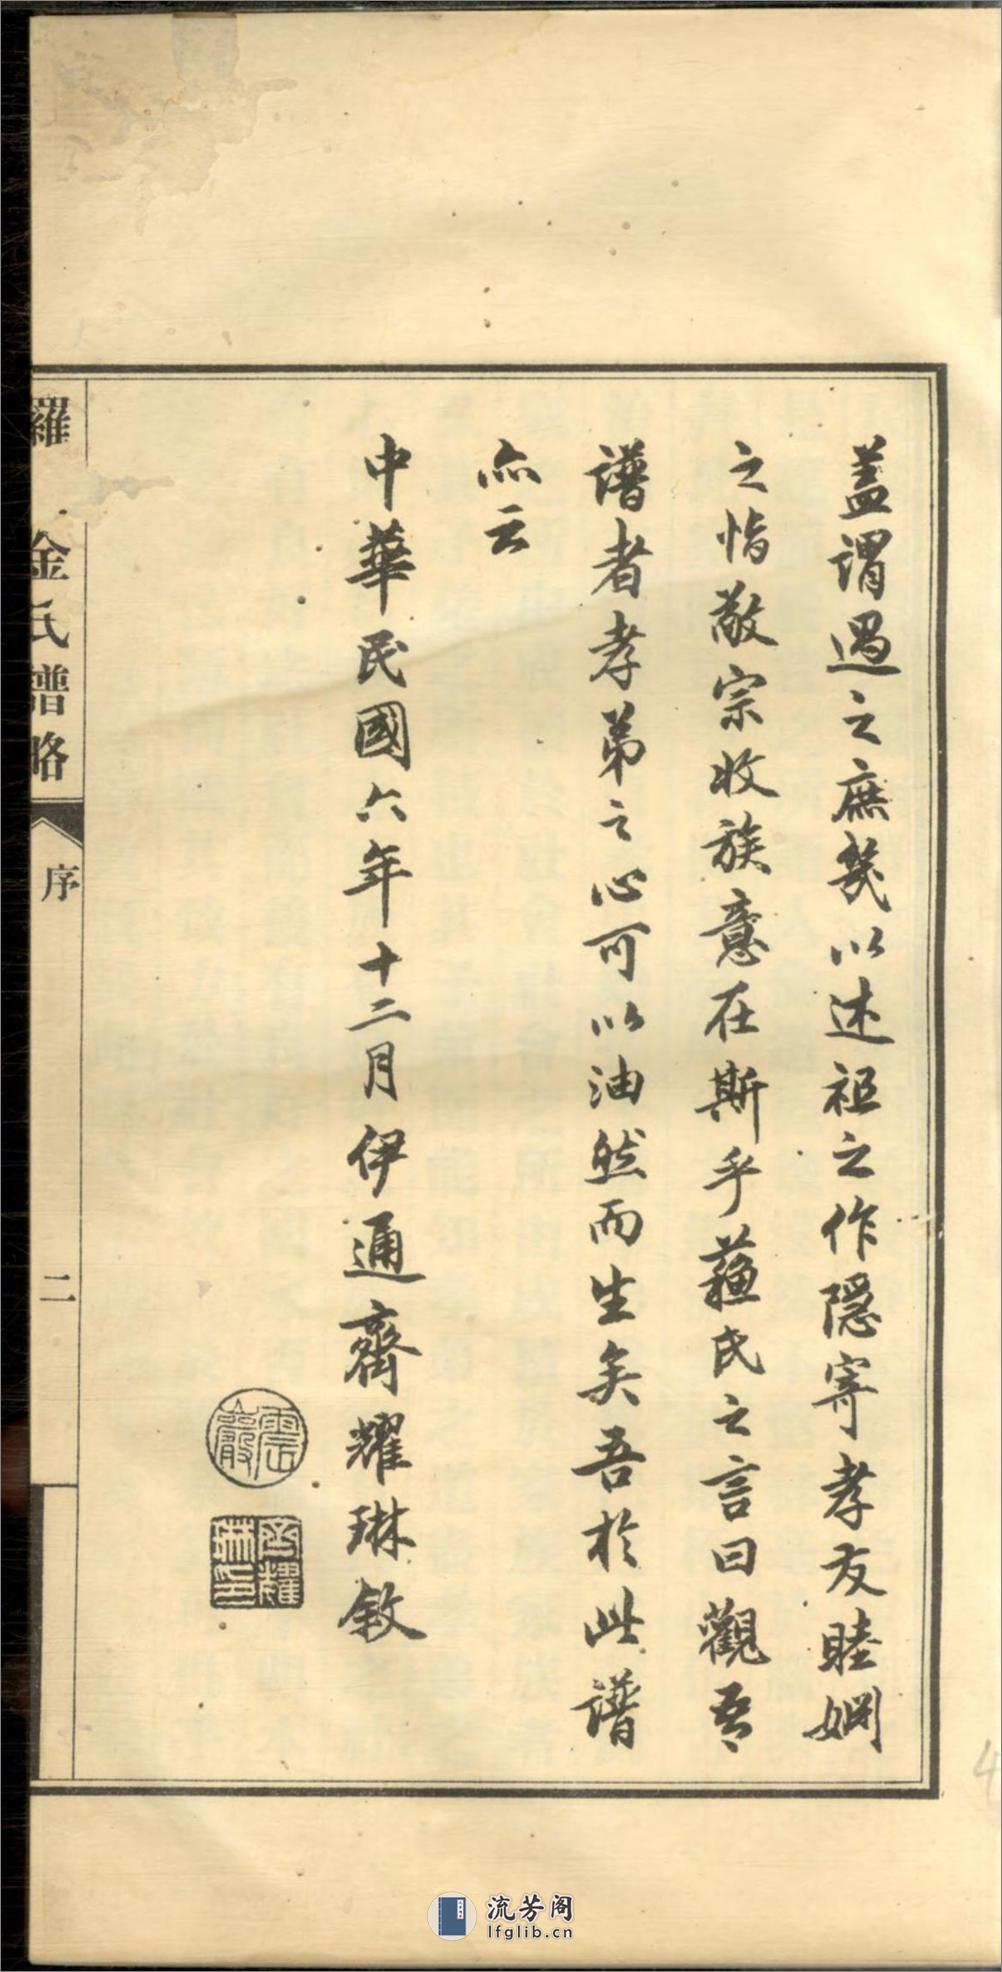 蓋謂過之庶幾以述祖之作隱寄孝友睦婣
之恉敬宗收族意在斯乎蘓氏之言曰觀吾
譜者孝弟之心可以油然而生矣吾於此譜
亦云
中華民國六年十二月伊通齊耀琳敘
震巖
齊耀琳印
羅 金氏譜略
序
二
4
流芳阁
lfglib.cn